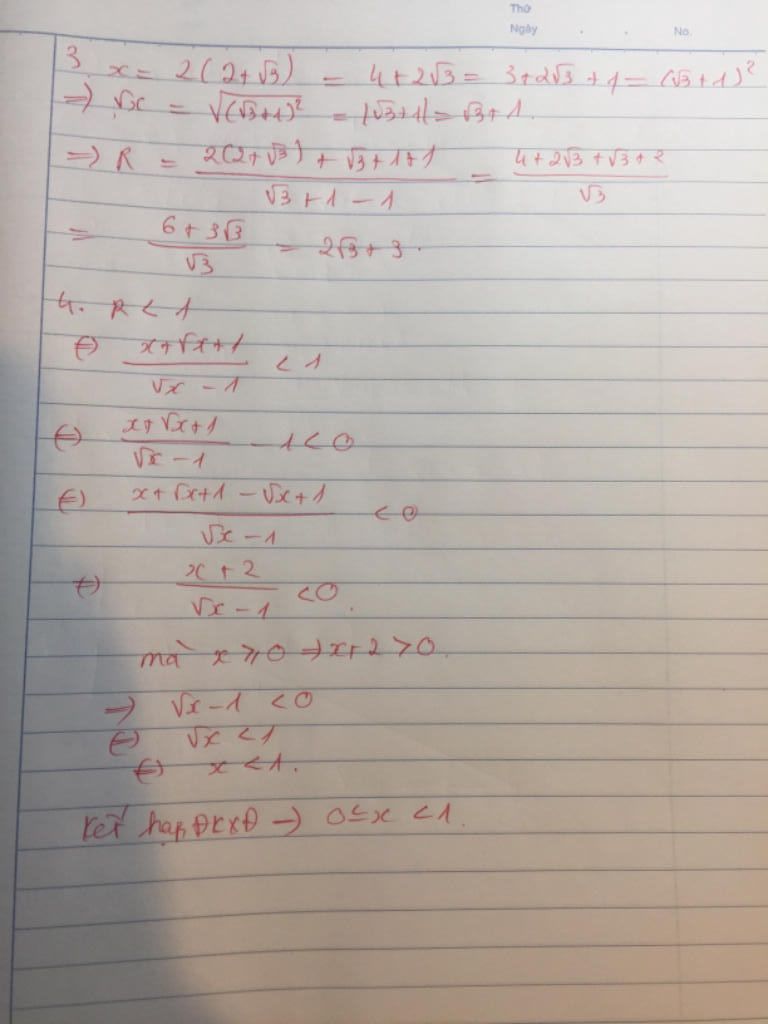 Thứ
Ngày . . No.
3. x = 2(2+√3) = 4+2√3 = 3+2√3+1 = (√3+1)²
⇒ √x = √(√3+1)² = |√3+1| = √3+1.
⇒ R = (2(2+√3)+√3+1+1)/(√3+1-1) = (4+2√3+√3+2)/√3
= (6+3√3)/√3 = 2√3+3.
4. R < 1
⇔ (x+√x+1)/(√x-1) < 1
⇔ (x+√x+1)/(√x-1) - 1 < 0
⇔ (x+√x+1-√x+1)/(√x-1) < 0
⇔ (x+2)/(√x-1) < 0.
mà x ⩾ 0 ⇒ x+2 > 0.
⇒ √x-1 < 0
⇔ √x < 1
⇔ x < 1.
Kết hợp ĐKXĐ → 0 ≤ x < 1.